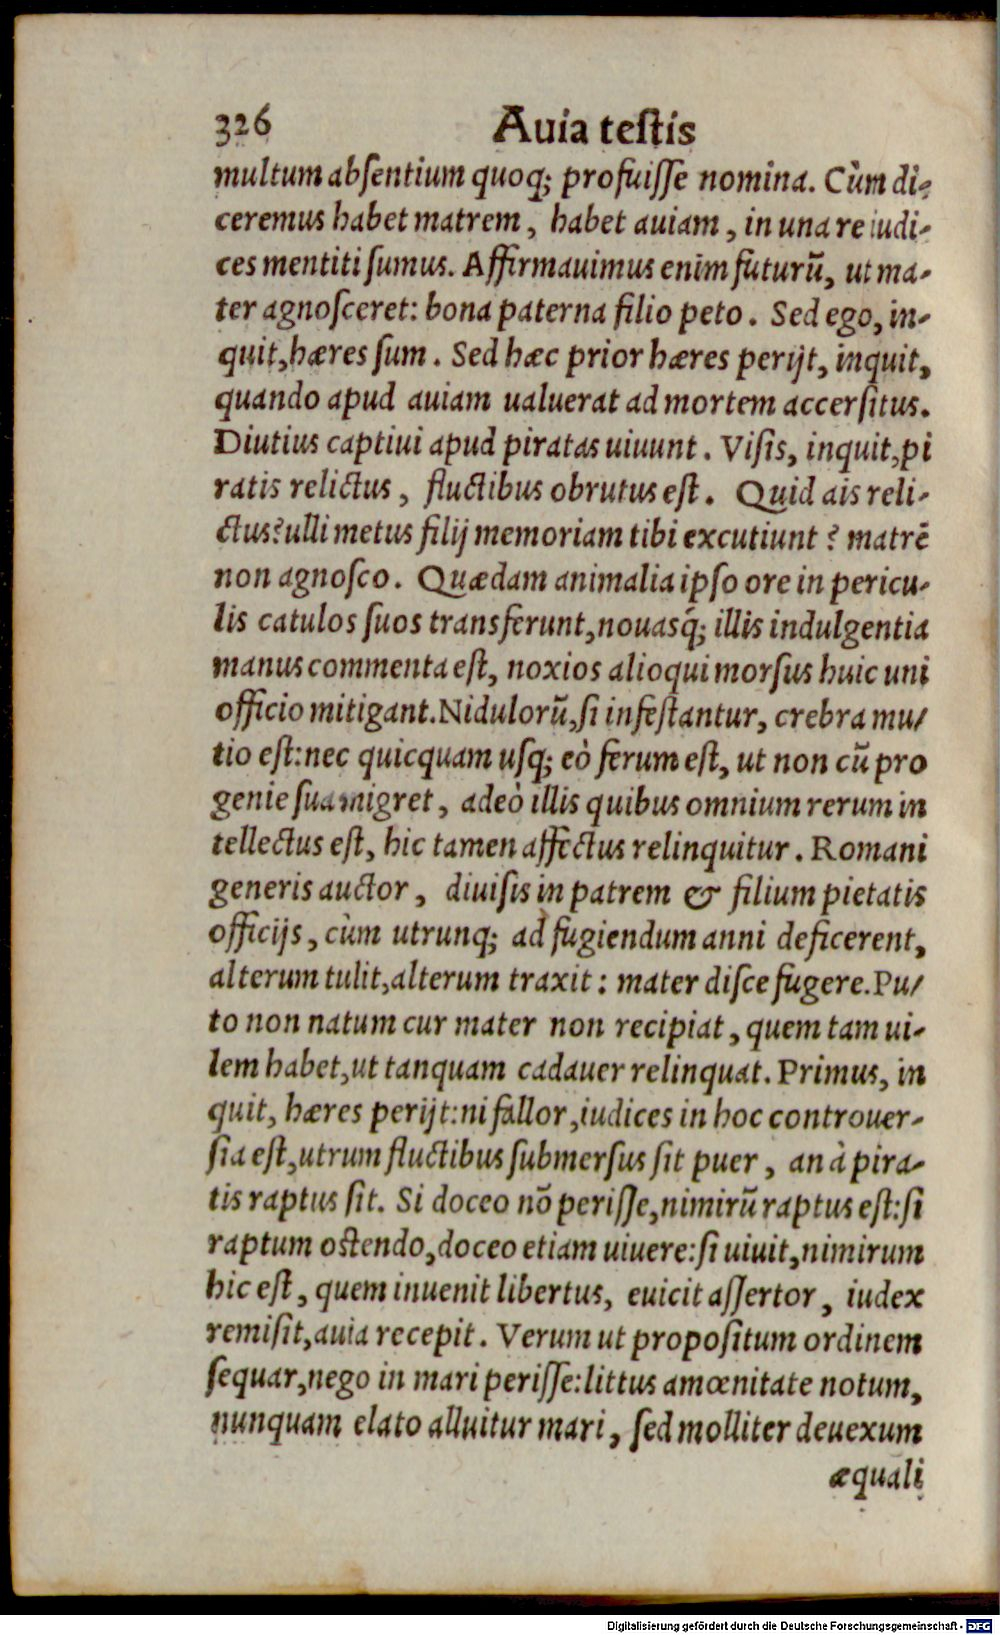 326 Auia teſtis
multum abſentium quoq; profuiſſe nomina. Cùm di-
ceremus habet matrem, habet auiam, in una re iudi-
ces mentiti ſumus. Affirmauimus enim futurū, ut ma-
ter agnoſceret: bona paterna filio peto. Sed ego, in-
quit, hæres ſum. Sed hæc prior hæres perijt, inquit,
quando apud auiam ualuerat ad mortem accerſitus.
Diutius captiui apud piratas uiuunt. Viſis, inquit, pi
ratis relictus, fluctibus obrutus eſt. Quid ais reli-
ctus? ulli metus filij memoriam tibi excutiunt? matrē
non agnoſco. Quædam animalia ipſo ore in pericu-
lis catulos ſuos transferunt, nouasq́; illis indulgentia
manus commenta eſt, noxios alioqui morſus huic uni
officio mitigant. Nidulorū, ſi infeſtantur, crebra mu/
tio eſt: nec quicquam uſq; eò ferum eſt, ut non cū pro
genie ſua migret, adeò illis quibus omnium rerum in
tellectus eſt, hic tamen affectus relinquitur. Romani
generis auctor, diuiſis in patrem & filium pietatis
officijs, cùm utrunq; ad fugiendum anni deficerent,
alterum tulit, alterum traxit: mater diſce fugere. Pu/
to non natum cur mater non recipiat, quem tam ui-
lem habet, ut tanquam cadauer relinquat. Primus, in
quit, hæres perijt: ni fallor, iudices in hoc controuer-
ſia eſt, utrum fluctibus ſubmerſus ſit puer, an à pira-
tis raptus ſit. Si doceo nō periſſe, nimirū raptus eſt: ſi
raptum oſtendo, doceo etiam uiuere: ſi uiuit, nimirum
hic eſt, quem inuenit libertus, euicit aſſertor, iudex
remiſit, auia recepit. Verum ut propoſitum ordinem
ſequar, nego in mari periſſe: littus amœnitate notum,
nunquam elato alluitur mari, ſed molliter deuexum
æquali
Digitalisierung gefördert durch die Deutsche Forschungsgemeinschaft - DFG